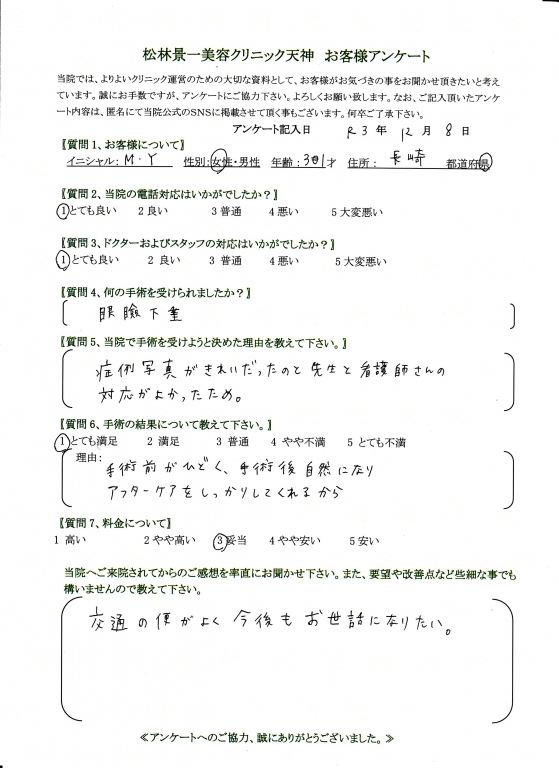 松林景一美容クリニック天神 お客様アンケート
当院では、よりよいクリニック運営のための大切な資料として、お客様がお気づきの事をお聞かせ頂きたいと考え
ています。誠にお手数ですが、アンケートにご協力下さい。よろしくお願い致します。なお、ご記入頂いたアンケ
ート内容は、匿名にて当院公式のSNSに掲載させて頂く事もございます。何卒ご了承下さい。
アンケート記入日 R3年 12月 8日
〖質問1、お客様について〗
イニシャル: M・Y 性別:女性・男性 年齢: 才 住所: 長崎 都道府県
〖質問2、当院の電話対応はいかがでしたか?〗
1とても良い 2良い 3普通 4悪い 5大変悪い
〖質問3、ドクターおよびスタッフの対応はいかがでしたか?〗
1とても良い 2 良い 3 普通 4悪い 5大変悪い
〖質問4、何の手術を受けられましたか?〗
眼瞼下垂
〖質問5、当院で手術を受けようと決めた理由を教えて下さい。〗
症例写真がきれいだったのと先生と看護師さんの
対応がよかったため。
〖質問6、手術の結果について教えて下さい。〗
1とても満足 2 満足 3 普通 4 やや不満 5 とても不満
理由:
手術前がひどく、手術後自然になり
アフターケアをしっかりしてくれるから
〖質問7、料金について〗
1 高い 2やや高い 3妥当 4やや安い 5安い
当院へご来院されてからのご感想を率直にお聞かせ下さい。また、要望や改善点など些細な事でも
構いませんので教えて下さい。
交通の便がよく今後もお世話になりたい。
≪アンケートへのご協力、誠にありがとうございました。≫